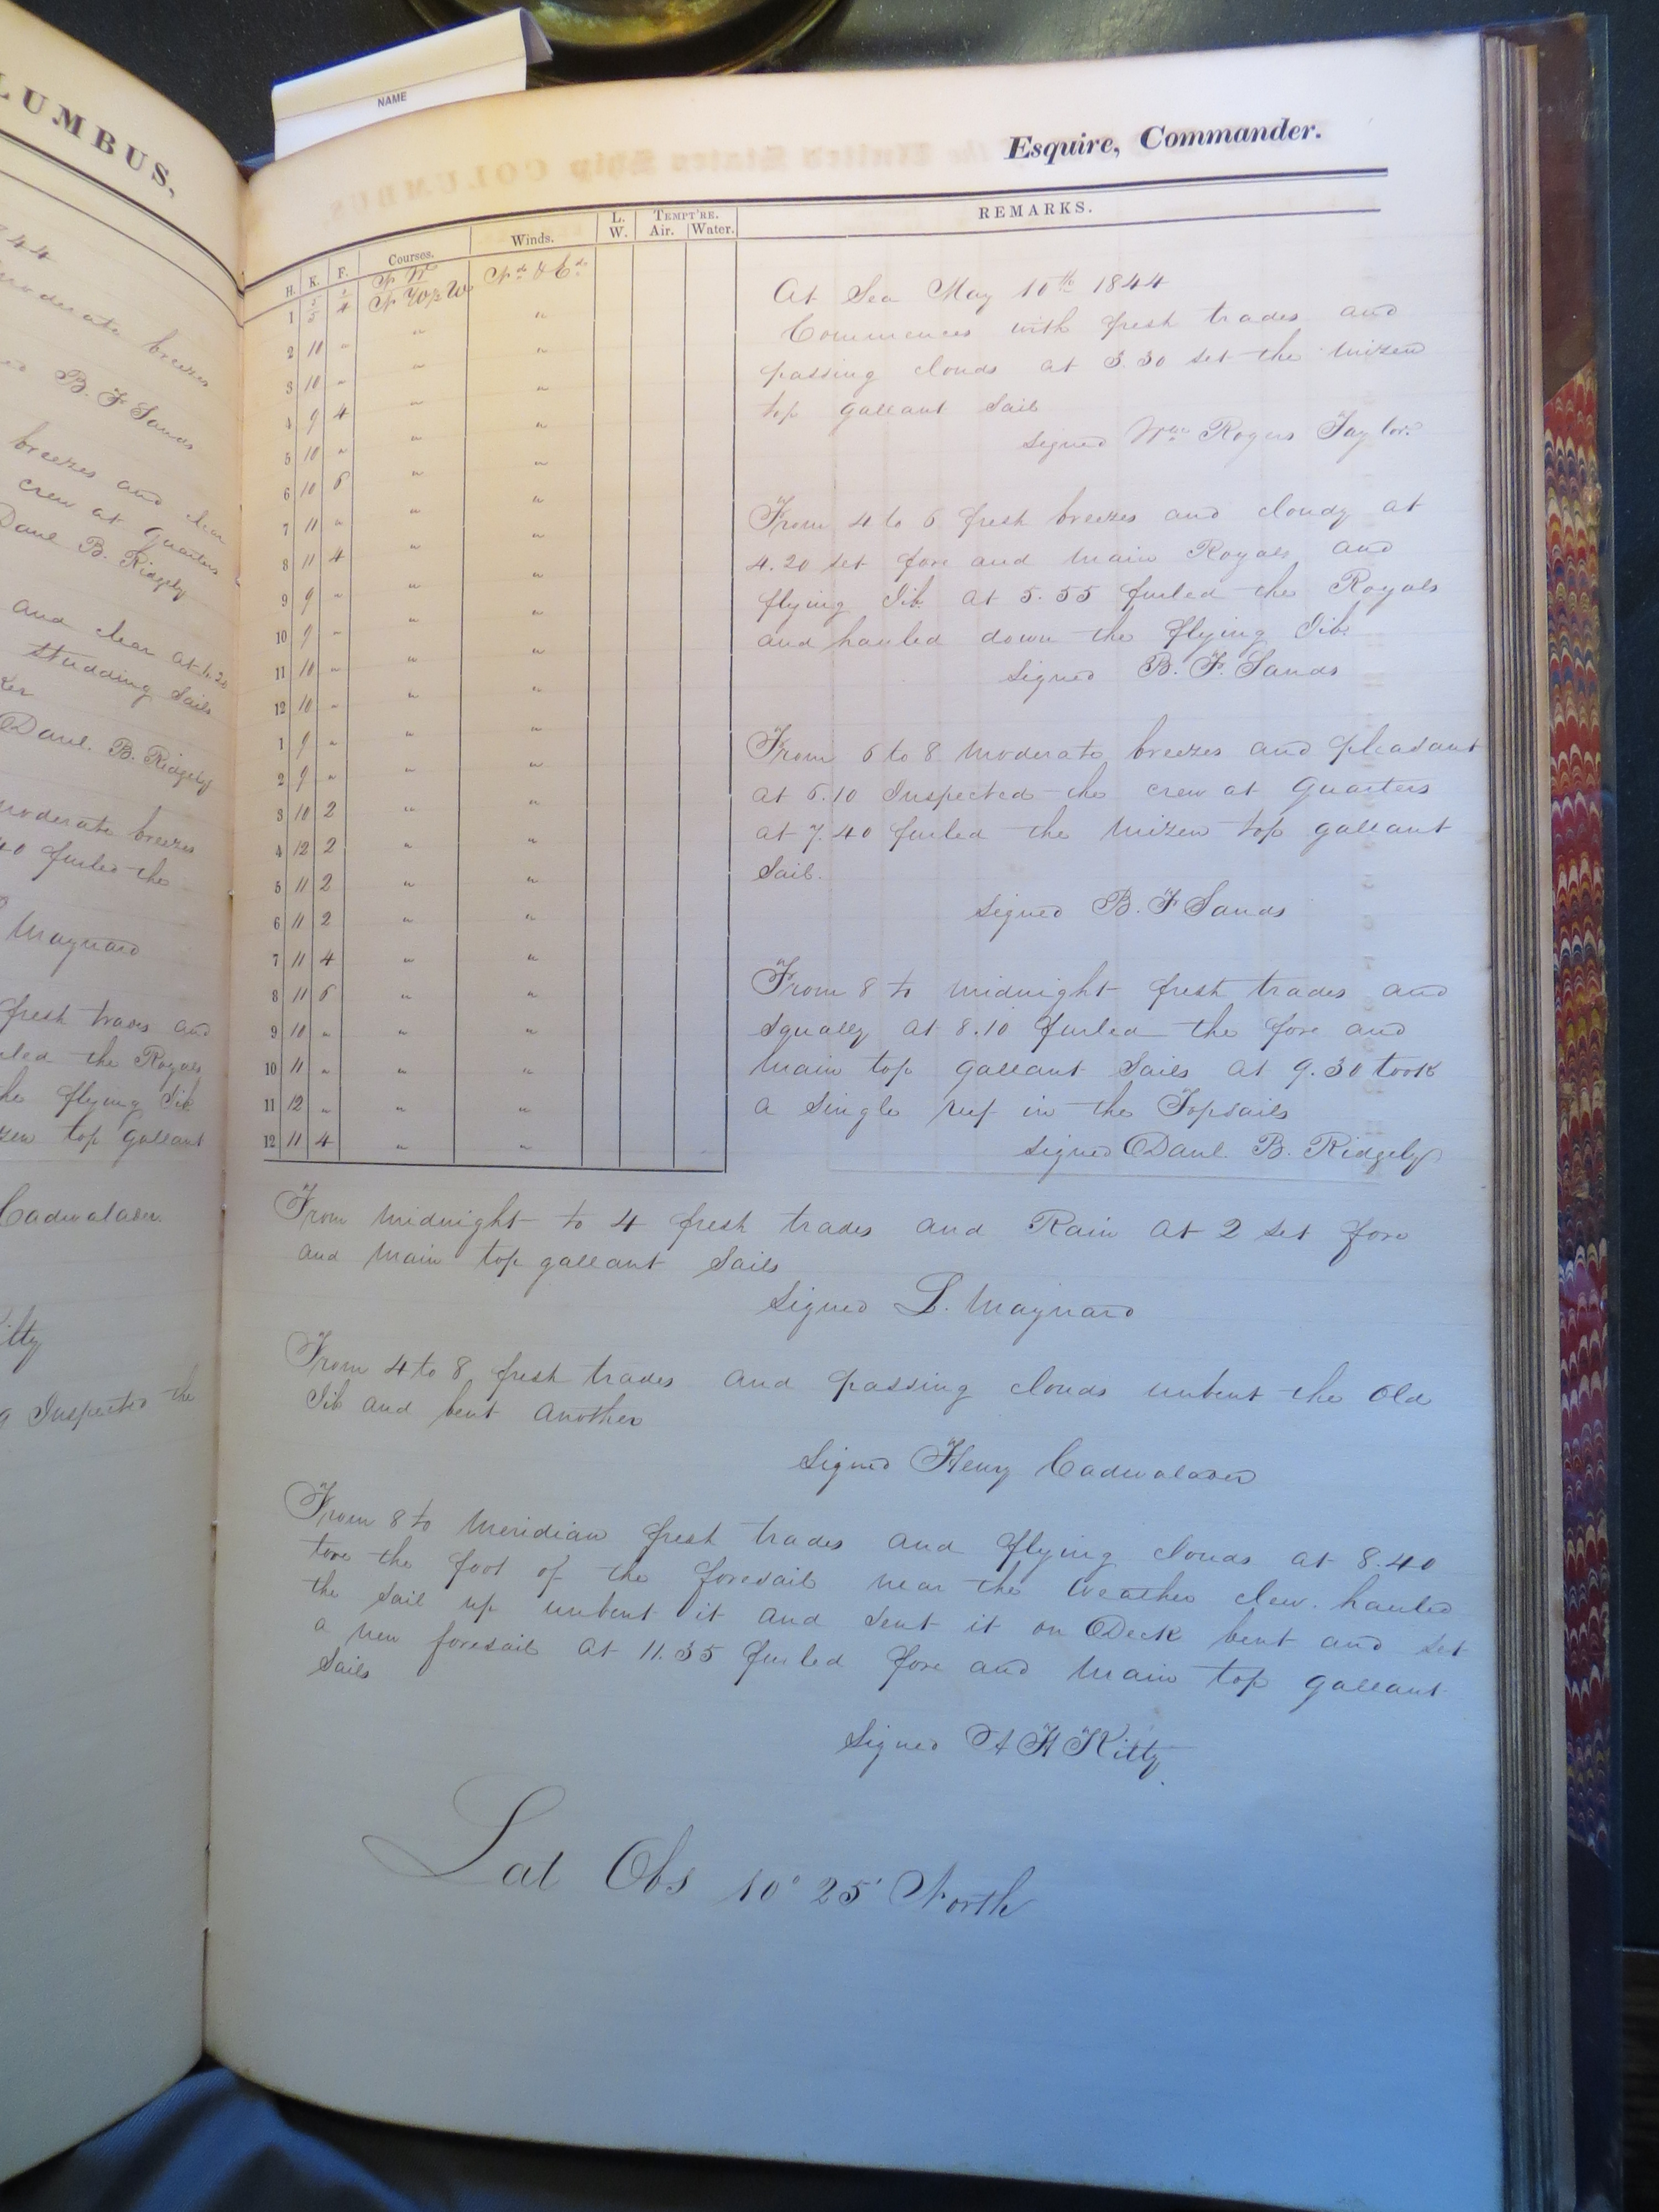 LUMBUS,
844
moderate breezes
B. F Sands
breezes and clear
crew at quarters
Danl B. Ridgely
and clear at 6.20
studding Sails
Danl. B. Ridgely
moderate breezes
40 furled the
Maynard
fresh trades and
the Royals
flying Jib
top gallant
Cadwalader
ilty
Inspected the
NAME
Esquire, Commander.
H. K. F. Courses. Winds. L. W. TEMPT'RE. Air. Water. REMARKS.
N W N.d & E.d
1 5 4 N W by W "
2 10 " " "
3 10 " " "
4 9 4 " "
5 10 " " "
6 10 6 " "
7 11 " " "
8 11 4 " "
9 9 " " "
10 9 " " "
11 10 " " "
12 10 " " "
1 9 " " "
2 9 " " "
3 10 2 " "
4 12 2 " "
5 11 2 " "
6 11 2 " "
7 11 4 " "
8 11 6 " "
9 10 " " "
10 11 " " "
11 12 " " "
12 11 4 " "
At Sea May 10th 1844
Commences with fresh trades and
passing clouds at 3.30 set the mizen
top gallant Sail
Signed Wm Rogers Taylor.
From 4 to 6 fresh breezes and cloudy at
4.20 set fore and main Royals and
flying Jib. at 5.55 furled the Royals
and hauled down the flying Jib.
Signed B. F. Sands
From 6 to 8 moderate breezes and pleasant
at 6.10 Inspected the crew at Quarters
at 7.40 furled the mizen top gallant
Sail.
Signed B. F Sands
From 8 to midnight fresh trades and
squally at 8.10 furled the fore and
main top gallant Sails at 9.30 took
a single reef in the Topsails
Signed Danl. B. Ridgely
From midnight to 4 fresh trades and Rain at 2 set fore
and main top gallant Sails
Signed L. Maynard
From 4 to 8 fresh trades and passing clouds unbent the Old
Jib and bent another
Signed Henry Cadwalader
From 8 to Meridian fresh trades and flying clouds at 8.40
tore the foot of the foresail near the weather clew. hauled
the sail up unbent it and sent it on Deck bent and set
a new foresail at 11.35 furled fore and main top gallant
Sails
Signed A H Kilty
Lat Obs 10° 25' North